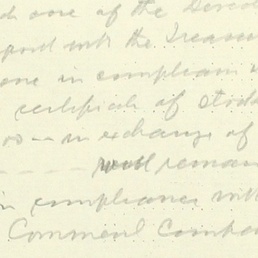 one of the Direc
with the Treasur
one in complian
certificate of stock
in exchange of
will remain
in compliance with
Comment Combe